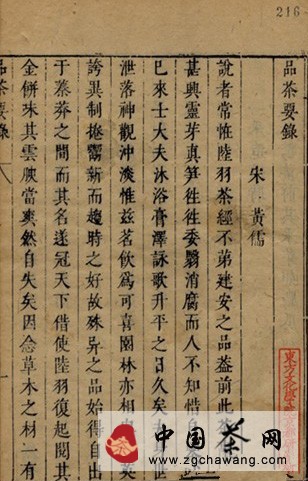 216
品茶要錄
宋 黃儒
說者常怪陸羽茶經不第建安之品蓋前此茶
甚興靈芽真笋徃徃委翳消腐而人不知惜自
已來士大夫沐浴膏澤詠歌升平之日久矣
泄落神觀沖淡惟茲茗飲為可喜園林亦相
誇異制捲鬻新而趨時之好故殊異之品始得自出
于蓁莽之間而其名遂冠天下借使陸羽復起閱其
金餅味其雲腴當爽然自失矣因念草木之材一有
品茶要錄
東方文化學
中国茶网
www.zgchawang.com